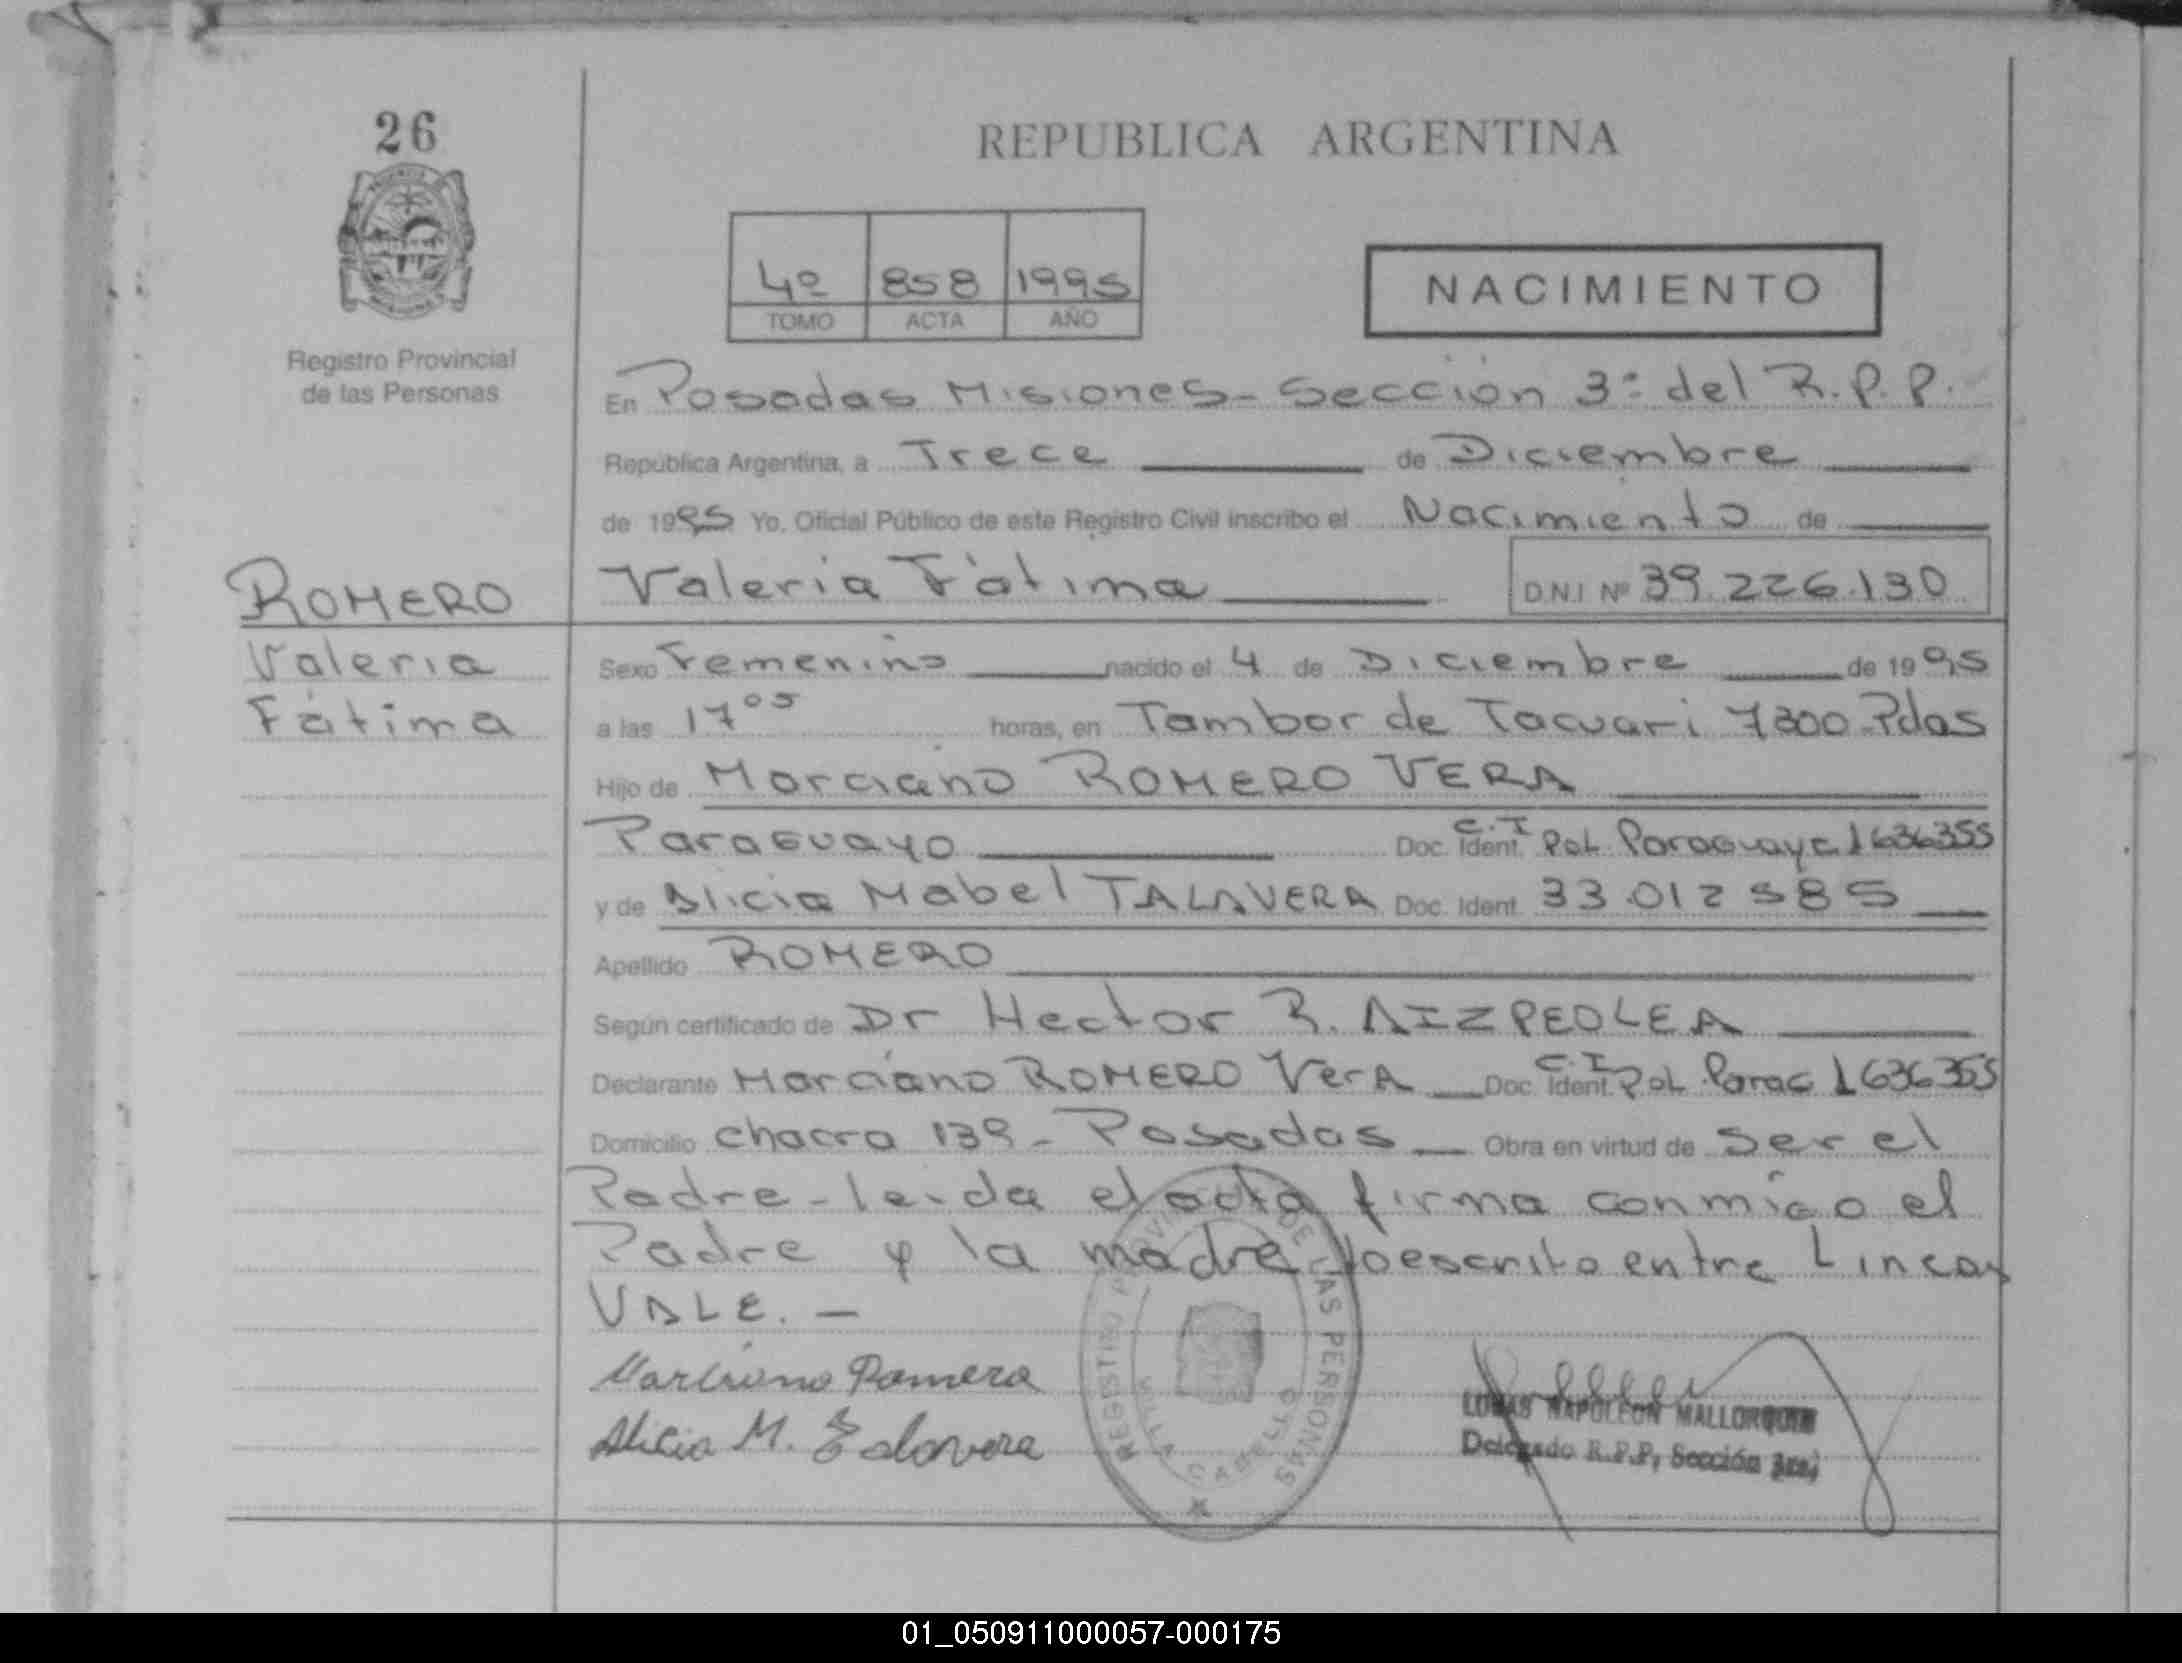 26
REPUBLICA ARGENTINA
4º 858 1995
TOMO ACTA AÑO
NACIMIENTO
Registro Provincial
de las Personas
En Posadas Misiones - Sección 3ª del R.P.P.
República Argentina, a Trece de Diciembre
de 1995 Yo, Oficial Público de este Registro Civil inscribo el Nacimiento de
ROMERO
Valeria Fátima D.N.I Nº 39.226.130
Valeria
Fátima
Sexo Femenino nacido el 4 de Diciembre de 1995
a las 17 05 horas, en Tambor de Tacuari 7300 - Pdas
Hijo de Marciano ROMERO VERA
Paraguayo Doc. Ident. C.I Pol. Paraguaya 1636355
y de Alicia Mabel TALAVERA Doc. Ident. 33.012 585
Apellido ROMERO
Según certificado de Dr Hector R. AIZPEOLEA
Declarante Marciano ROMERO VerA Doc. Ident. C.I Pol. Parag 1636355
Domicilio chacra 139 - Posadas Obra en virtud de ser el
Padre - leida el acta firma conmigo el
Padre y la madre loescrito entre Lineas
VALE. -
Marciano Romero
Alicia M. Talavera
REGISTRO PROVINCIAL DE LAS PERSONAS
VILLA CABELLO
LUCAS NAPOLEON MALLORQUIN
Delegado R.P.P, Sección 3ra,
01_050911000057-000175